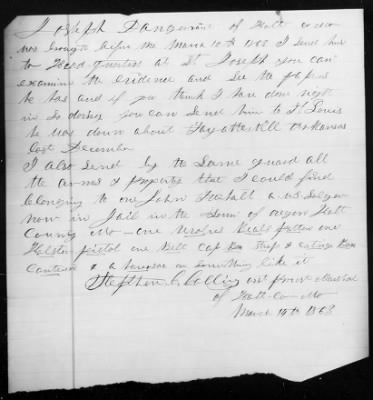 Joseph Dangerfine of Holt co mo
was brought before me March 10th 1863 I send him
to Head quarters at St Joseph you can
examine the evidence and see the papers
he has and if you think I have done right
in so doing you can send him to St Louis
he was down about Fayetteville Arkansas
last December
I also send by the same guard all
the arms & property that I could find
belonging to one John
now in Jail in the Town of oregon Holt
County Mo one
Holster pistol one Belt Cap Box Strap & catrige Box
Canteen & a or something like it
Stephen C Collins asst provst Marshal
of Holt co Mo
March 14th 1863